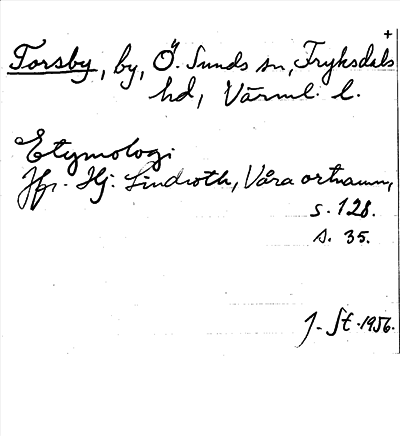 +
Torsby, by, Ö. Sunds sn, Fryksdals
hd, Värml. l.
Etymologi.
Jfr. Hj. Lindroth, Våra ortnamn,
s. 128.
s. 35.
J. St. 1956.